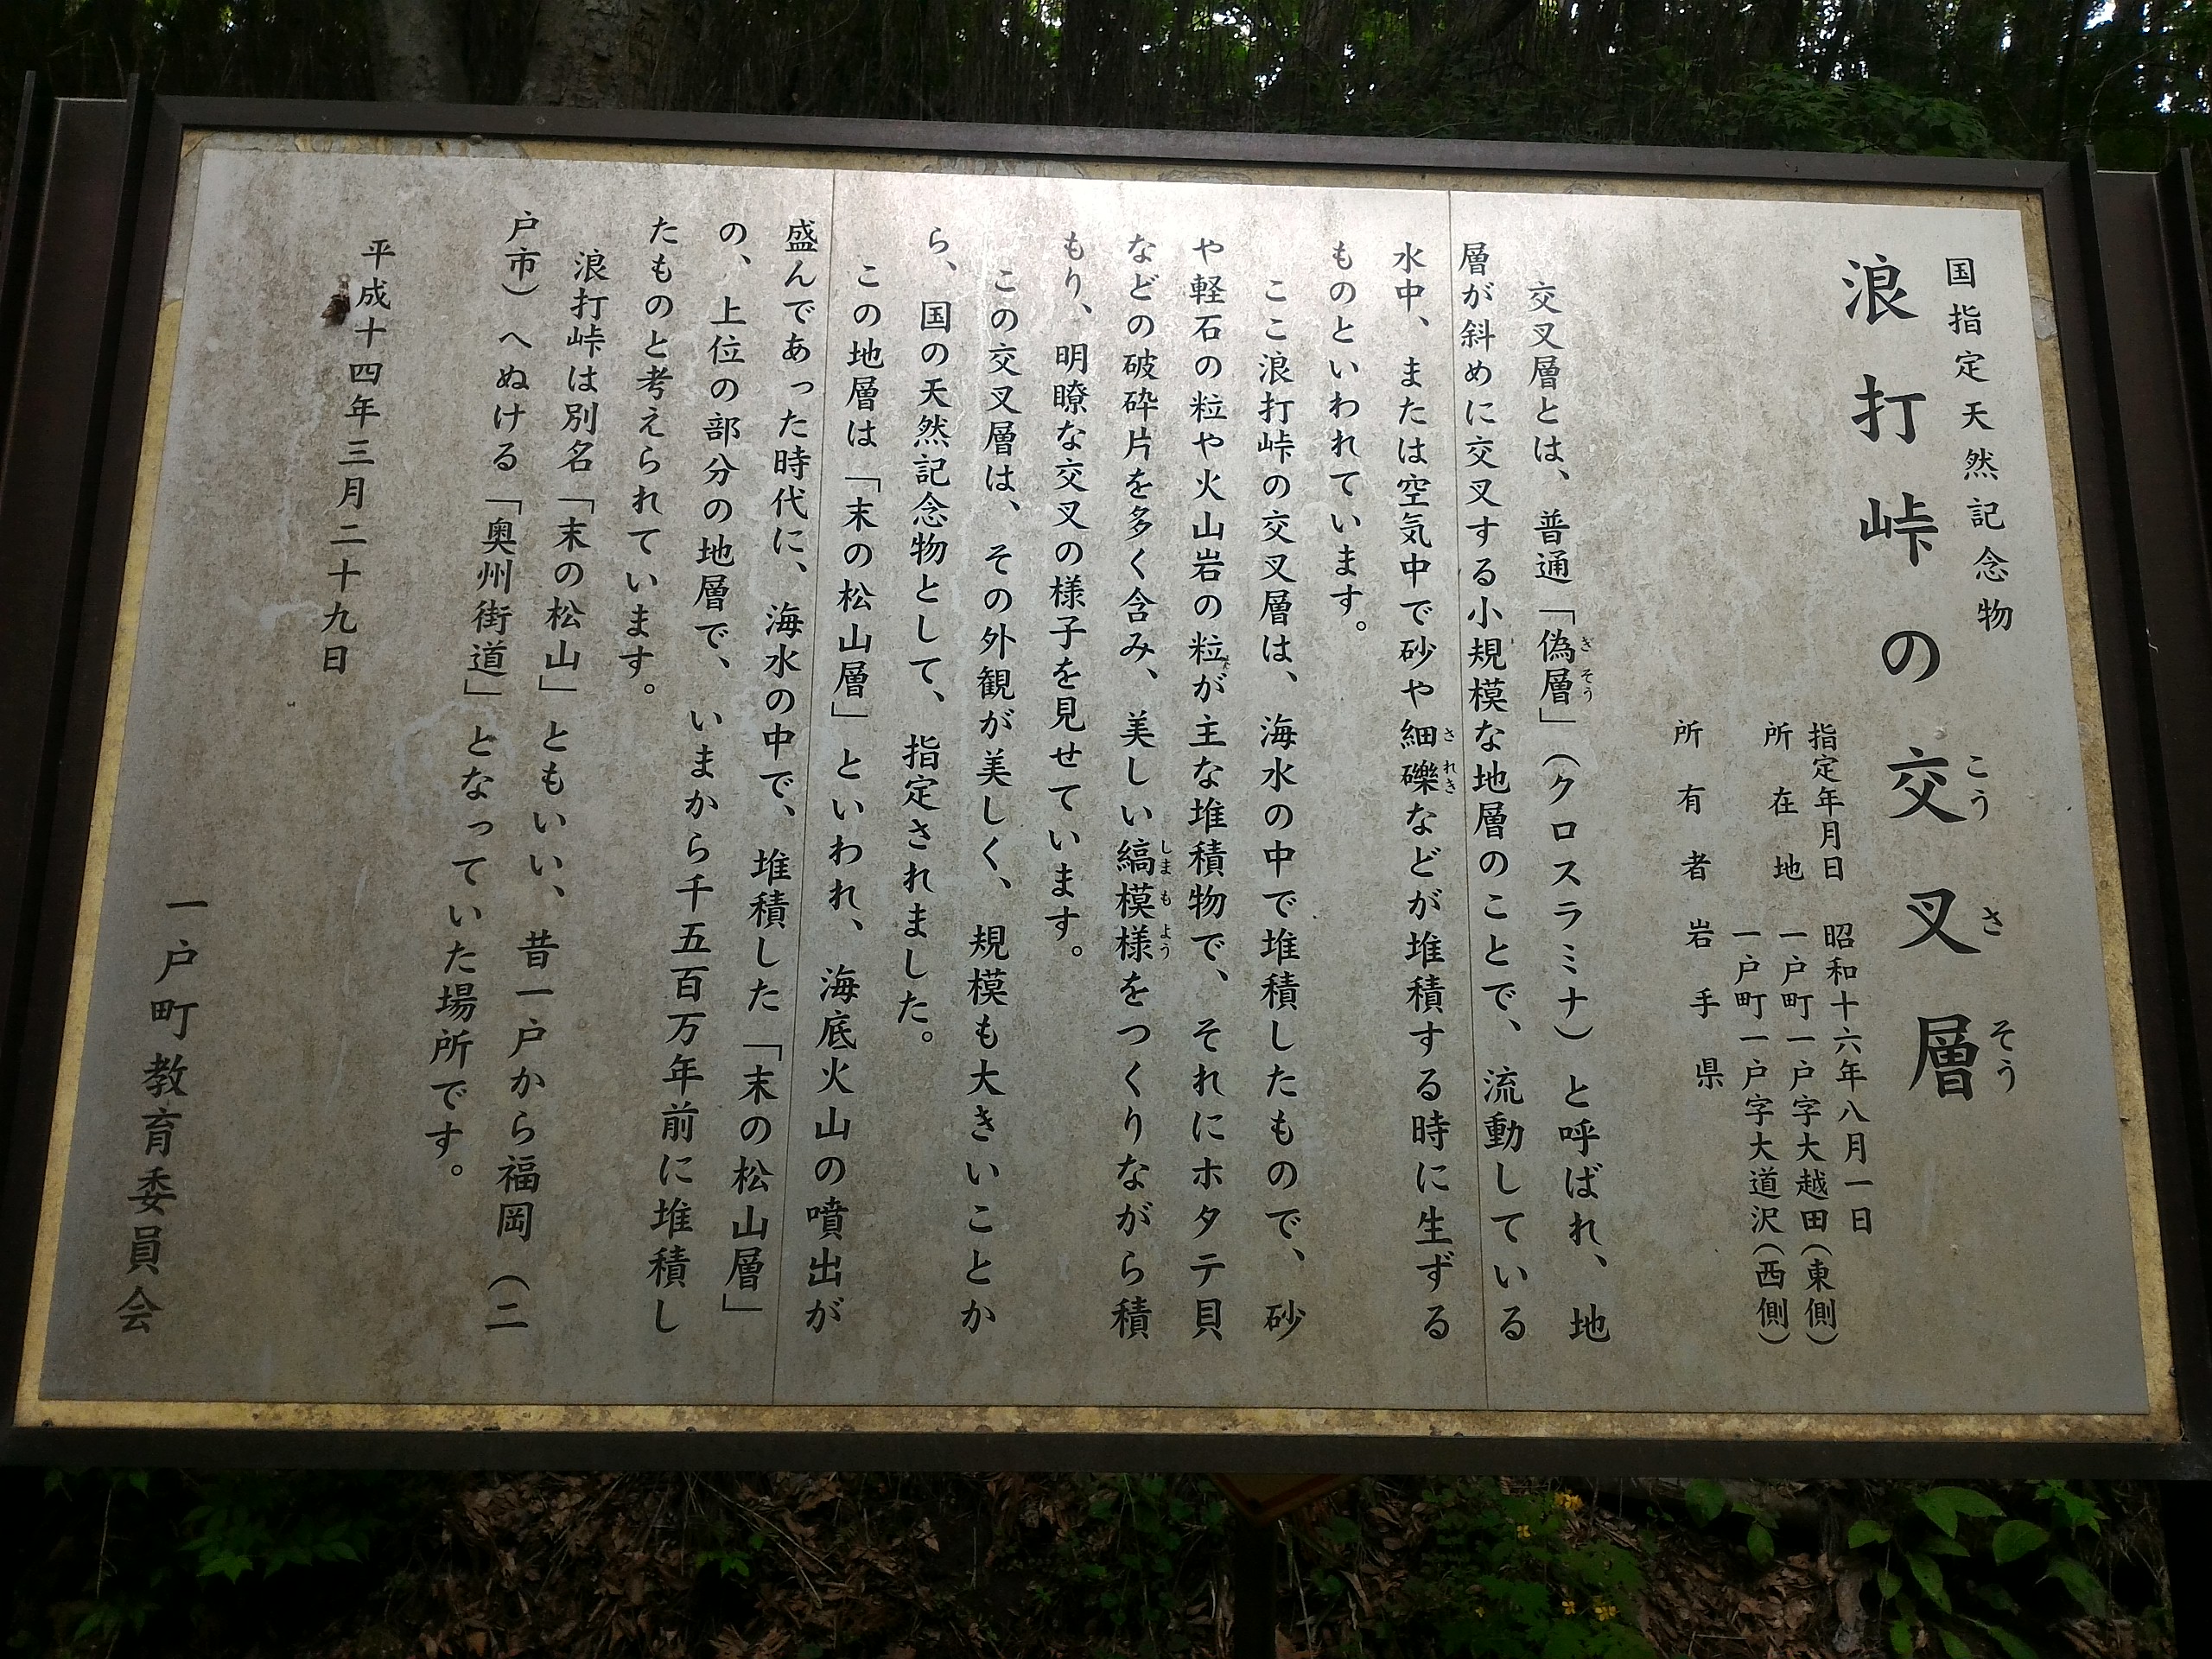 国指定天然記念物
浪打峠の交叉層
こうさそう
指定年月日 昭和十六年八月一日
所在地 一戸町一戸字大越田(東側)
一戸町一戸字大道沢(西側)
所有者 岩手県
交叉層とは、普通「偽層」(クロスラミナ)と呼ばれ、地
ぎそう
層が斜めに交叉する小規模な地層のことで、流動している
水中、または空気中で砂や細礫などが堆積する時に生ずる
されき
ものといわれています。
ここ浪打峠の交叉層は、海水の中で堆積したもので、砂
や軽石の粒や火山岩の粒が主な堆積物で、それにホタテ貝
などの破砕片を多く含み、美しい縞模様をつくりながら積
しまもよう
もり、明瞭な交叉の様子を見せています。
この交叉層は、その外観が美しく、規模も大きいことか
ら、国の天然記念物として、指定されました。
この地層は「末の松山層」といわれ、海底火山の噴出が
盛んであった時代に、海水の中で、堆積した「末の松山層」
の、上位の部分の地層で、いまから千五百万年前に堆積し
たものと考えられています。
浪打峠は別名「末の松山」ともいい、昔一戸から福岡(二
戸市)へぬける「奥州街道」となっていた場所です。
平成十四年三月二十九日
一戸町教育委員会